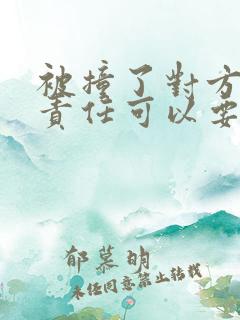 被撞了對方
責任可以要
郁慕明
未经同意禁止转载